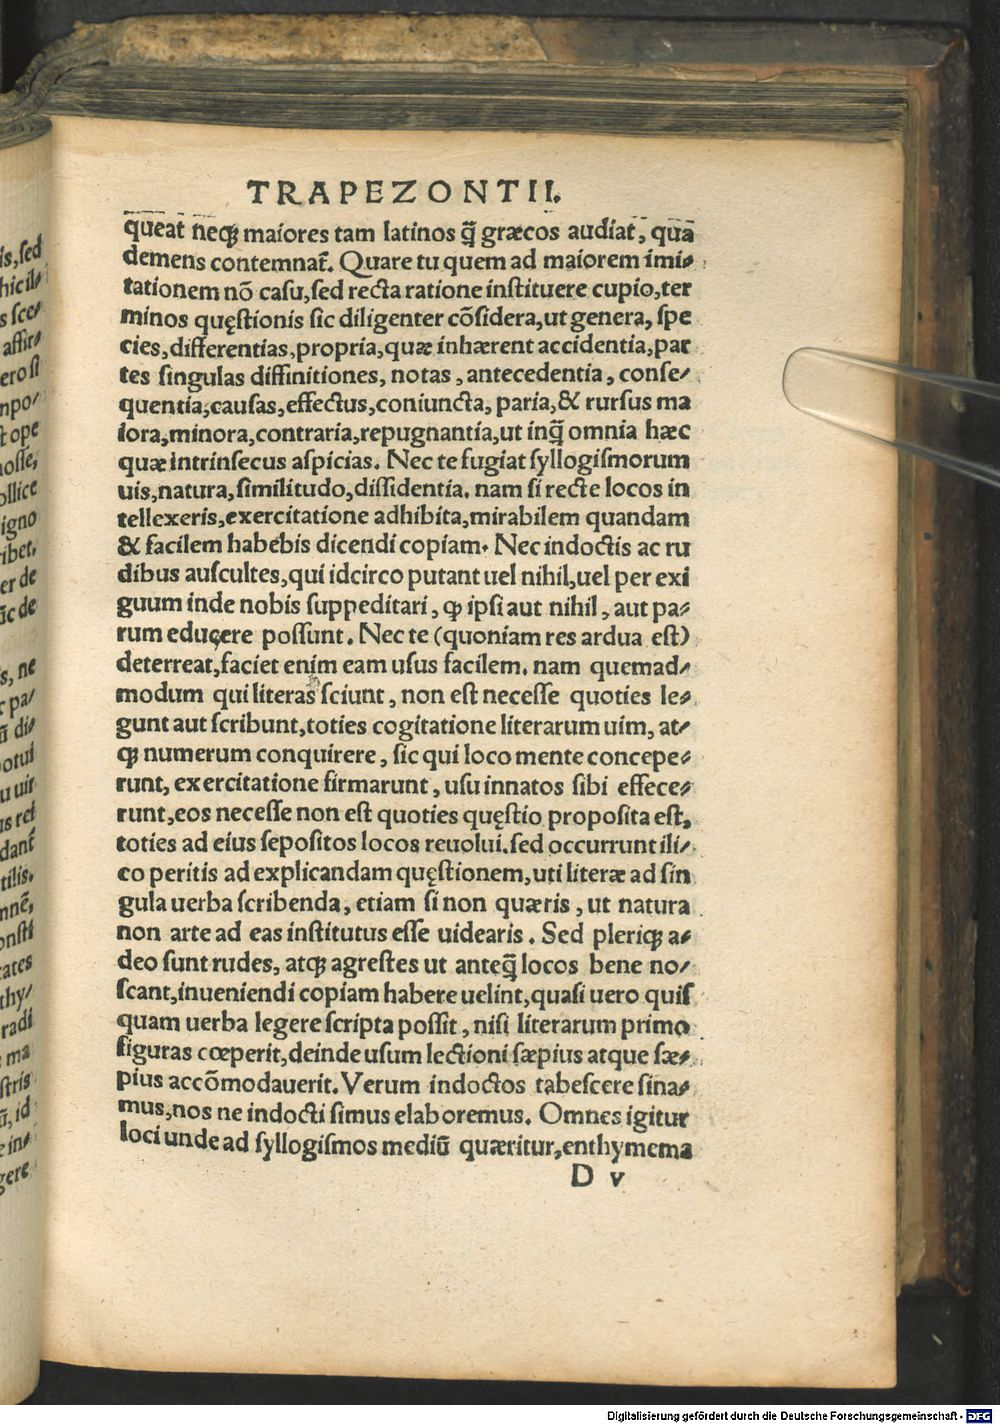 TRAPEZONTII.
queat neqꝫ maiores tam latinos q̃ græcos audiat, quã
demens contemnat᷑. Quare tu quem ad maiorem imi⸗
tationem nõ casu, sed recta ratione instituere cupio, ter
minos quęstionis sic diligenter cõsidera, ut genera, spe
cies, differentias, propria, quæ inhærent accidentia, par
tes singulas diffinitiones, notas, antecedentia, conse⸗
quentia, causas, effectus, coniuncta, paria, & rursus ma
iora, minora, contraria, repugnantia, ut inq̃ omnia hæc
quæ intrinsecus aspicias. Nec te fugiat syllogismorum
uis, natura, similitudo, dissidentia. nam si recte locos in
tellexeris, exercitatione adhibita, mirabilem quandam
& facilem habebis dicendi copiam. Nec indoctis ac ru
dibus auscultes, qui idcirco putant uel nihil, uel per exi
guum inde nobis suppeditari, ꝙ ipsi aut nihil, aut pa⸗
rum educere possunt. Nec te (quoniam res ardua est)
deterreat, faciet enim eam usus facilem. nam quemad⸗
modum qui literas sciunt, non est necesse quoties le⸗
gunt aut scribunt, toties cogitatione literarum uim, at⸗
qꝫ numerum conquirere, sic qui loco mente concepe⸗
runt, exercitatione firmarunt, usu innatos sibi effece⸗
runt, eos necesse non est quoties quęstio proposita est,
toties ad eius sepositos locos reuolui. sed occurrunt ili⸗
co peritis ad explicandam quęstionem, uti literæ ad sin
gula uerba scribenda, etiam si non quæris, ut natura
non arte ad eas institutus esse uidearis. Sed pleriqꝫ a⸗
deo sunt rudes, atqꝫ agrestes ut anteq̃ locos bene no⸗
scant, inueniendi copiam habere uelint, quasi uero quis
quam uerba legere scripta possit, nisi literarum primo
figuras cœperit, deinde usum lectioni sæpius atque sæ⸗
pius accõmodauerit. Verum indoctos tabescere sina⸗
mus, nos ne indocti simus elaboremus. Omnes igitur
loci unde ad syllogismos mediũ quæritur, enthymema
D v
Digitalisierung gefördert durch die Deutsche Forschungsgemeinschaft - DFG